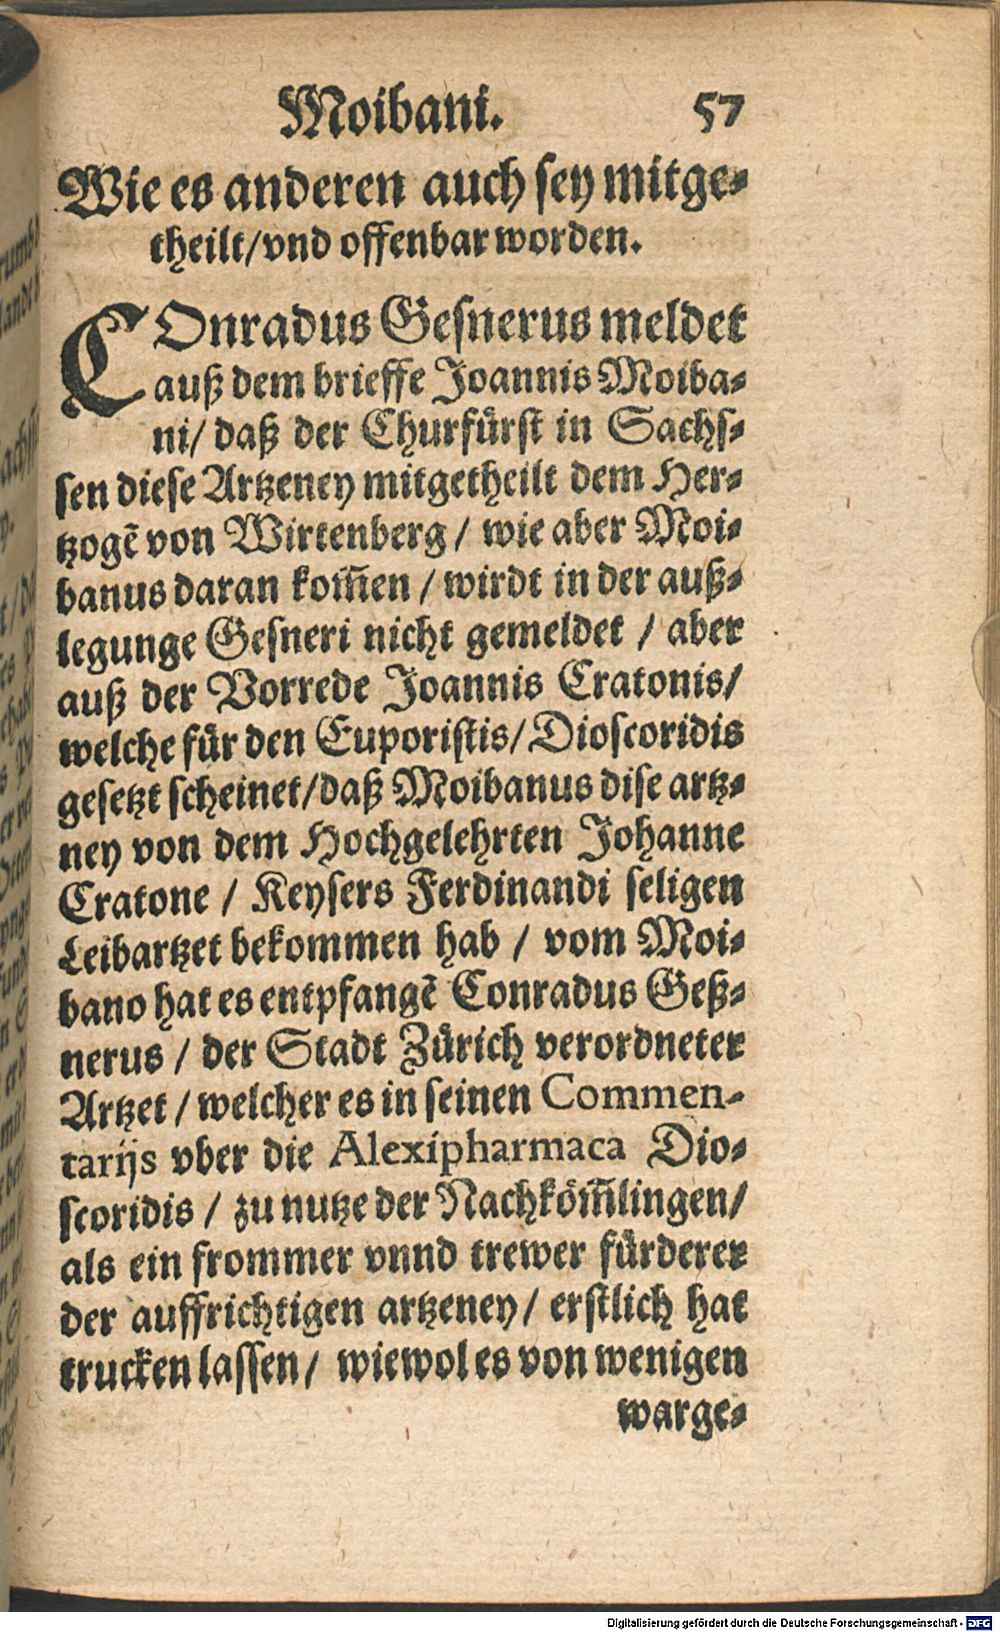 Moibani. 57
Wie es anderen auch sey mitge-
theilt/vnd offenbar worden.
COnradus Gesnerus meldet
auß dem brieffe Joannis Moiba-
ni/ daß der Churfürst in Sachs-
sen diese Artzeney mitgetheilt dem Her-
tzogē von Wirtenberg / wie aber Moi-
banus daran kom̄en / wirdt in der auß-
legunge Gesneri nicht gemeldet / aber
auß der Vorrede Joannis Cratonis/
welche für den Euporistis/ Dioscoridis
gesetzt scheinet/daß Moibanus dise artz-
ney von dem Hochgelehrten Johanne
Cratone / Keysers Ferdinandi seligen
Leibartzet bekommen hab / vom Moi-
bano hat es entpfangē Conradus Geß-
nerus / der Stadt Zürich verordneter
Artzet / welcher es in seinen Commen-
tarijs vber die Alexipharmaca Dio-
scoridis / zu nutze der Nachköm̄lingen/
als ein frommer vnnd trewer fürderer
der auffrichtigen artzeney/ erstlich hat
trucken lassen/ wiewol es von wenigen
warge-
Digitalisierung gefördert durch die Deutsche Forschungsgemeinschaft - DFG